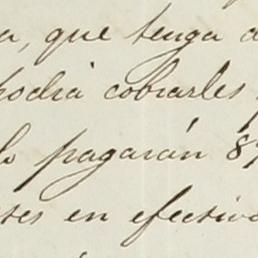 a, que tenga a
podia cobrarles
lo pagarán 8
tes en efectivo